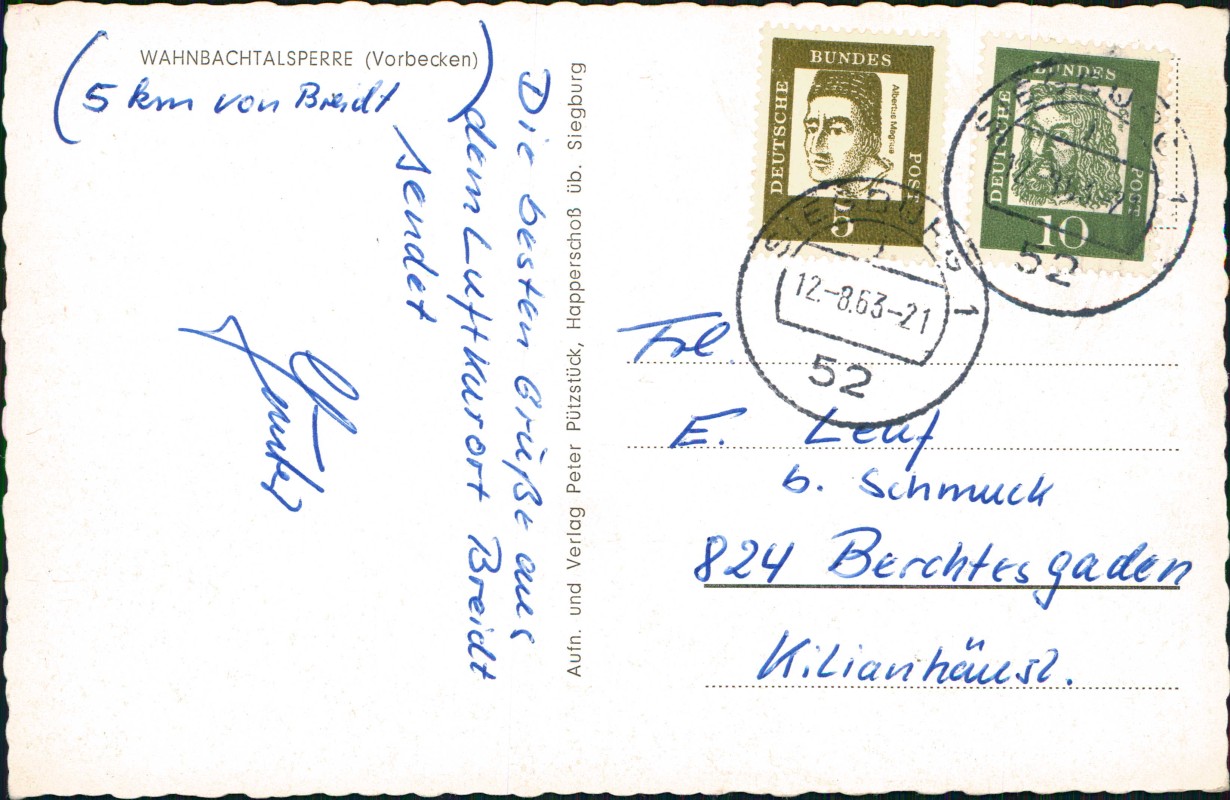 WAHNBACHTALSPERRE (Vorbecken)
(5 km von Breidt)
Die besten Grüße aus
dem Luftkurort Breidt
sendet
Günter
Aufn. und Verlag Peter Pützstück, Happerschoß üb. Siegburg
DEUTSCHE BUNDES POST
Albertus Magnus
5
DEUTSCHE BUNDES POST
10
SIEGBURG 1
12.-8.63-21
52
SIEGBURG 1
52
Frl.
E. Leuf
b. Schmuck
824 Berchtesgaden
Kilianhäusl.